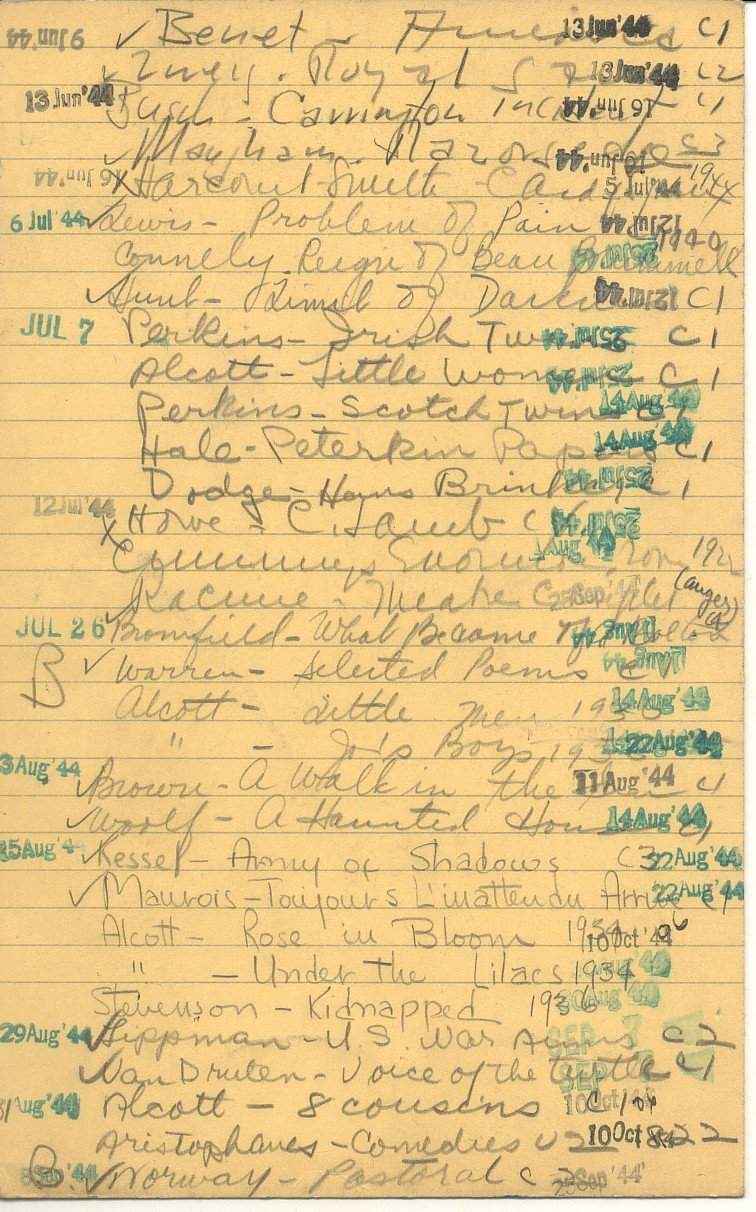 9 Jun '44 ✓ Benet - 13 Jun '44 C1
Royal 13 Jun '44 C2
13 Jun '44 Carrington Incident 16 Jun '44 C1
✓ Maugham - 16 Jun '44 C3
16 Jun '44 x Harcourt-Smith - 5 Jul '44 1944
6 Jul '44 ✓ Lewis - Problem of Pain 12 Jul '44 1940
Connely Reign of Beau Brummell 25 Jul '44
✓ Hunt - Limit of 12 Jul '44 C1
JUL 7 Perkins - Irish Twins 25 Jul '44 C1
Alcott - Little Women 25 Jul '44 C1
Perkins - Scotch Twins 14 Aug '44 C1
Hale - Peterkin Papers 14 Aug '44 C1
Dodge - Hans Brinker 25 Jul '44 C1
12 Jul '44 Howe - C. Lamb 25 Jul '44
x Cummings Enormous Room Aug '44 1922
Racine - 25 Sep '44
JUL 26 ✓ Bromfield - What Became of
B ✓ Warren - Selected Poems C1
Alcott - Little Men 14 Aug '44
" - Jo's Boys 22 Aug '44
3 Aug '44 Brown - A Walk in the 11 Aug '44 C1
✓ Woolf - A Haunted House 14 Aug '44 C1
15 Aug '4 ✓ Kessel - Army of Shadows C3 22 Aug '44
✓ Maurois - Toujours L'inattendu Arrive 22 Aug '44 C1
Alcott - Rose in Bloom 1934 10 Oct '44
" - Under the Lilacs 1934 Aug '44
Stevenson - Kidnapped 1936 30 Aug '44
29 Aug '44 ✓ Lippman - U.S. War Aims SEP 7 C2
✓ Van Druten - Voice of the Turtle SEP C1
31 Aug '44 Alcott - 8 cousins C1 10 Oct
Aristophanes - Comedies 10 Oct '44
B. Sep '44 ✓ Norway - Pastoral C2 25 Sep '44